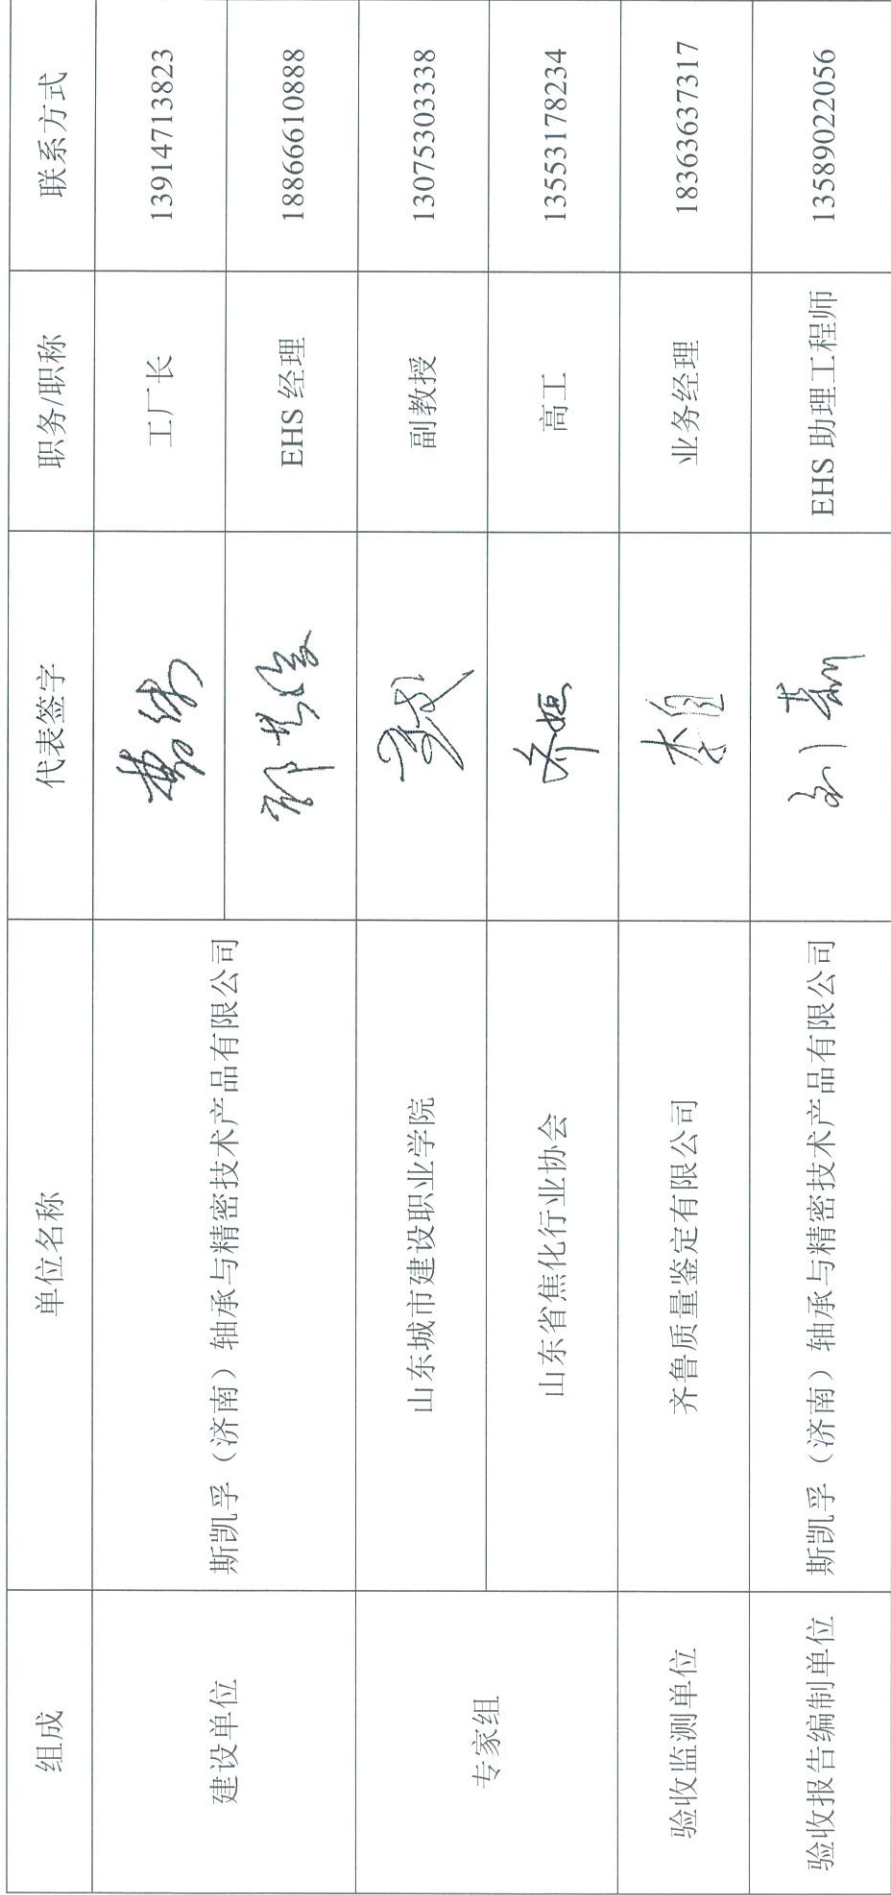 组成 单位名称 代表签字 职务/职称 联系方式
建设单位 斯凯孚（济南）轴承与精密技术产品有限公司 工厂长 13914713823
EHS 经理 18866610888
专家组 山东城市建设职业学院 副教授 13075303338
山东省焦化行业协会 高工 13553178234
验收监测单位 齐鲁质量鉴定有限公司 业务经理 18363637317
验收报告编制单位 斯凯孚（济南）轴承与精密技术产品有限公司 EHS 助理工程师 13589022056